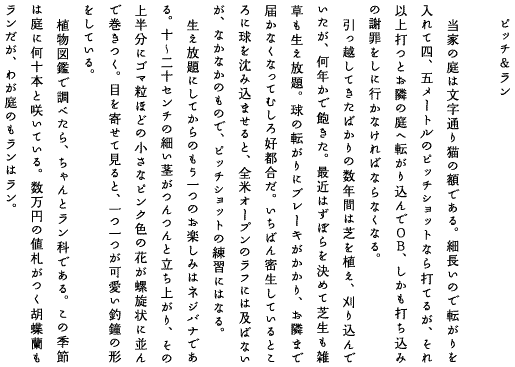 ピッチ＆ラン
当家の庭は文字通り猫の額である。細長いので転がりを
入れて四、五メートルのピッチショットなら打てるが、それ
以上打つとお隣の庭へ転がり込んでＯＢ、しかも打ち込み
の謝罪をしに行かなければならなくなる。
引っ越してきたばかりの数年間は芝を植え、刈り込んで
いたが、何年かで飽きた。最近はずぼらを決めて芝生も雑
草も生え放題。球の転がりにブレーキがかかり、お隣まで
届かなくなってむしろ好都合だ。いちばん密生しているとこ
ろに球を沈み込ませると、全米オープンのラフには及ばない
が、なかなかのもので、ピッチショットの練習にはなる。
生え放題にしてからのもう一つのお楽しみはネジバナであ
る。十～二十センチの細い茎がつんつんと立ち上がり、その
上半分にゴマ粒ほどの小さなピンク色の花が螺旋状に並ん
で巻きつく。目を寄せて見ると、一つ一つが可愛い釣鐘の形
をしている。
植物図鑑で調べたら、ちゃんとラン科である。この季節
は庭に何十本と咲いている。数万円の値札がつく胡蝶蘭も
ランだが、わが庭のもランはラン。